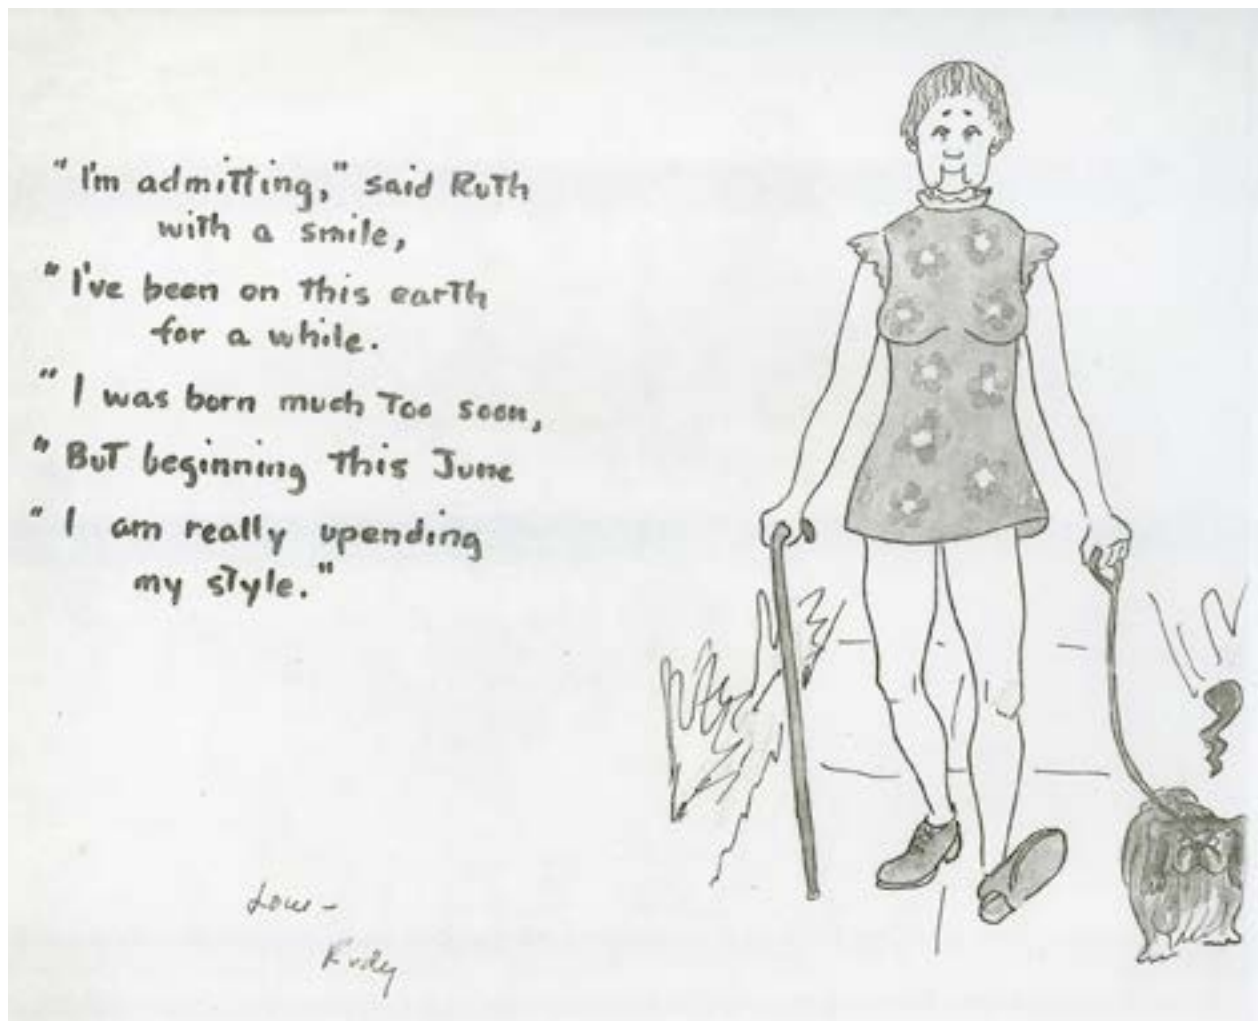 "I'm admitting," said Ruth
with a smile,
"I've been on this earth
for a while.
"I was born much too soon,
"But beginning this June
"I am really upending
my style."
Love –
Rudy